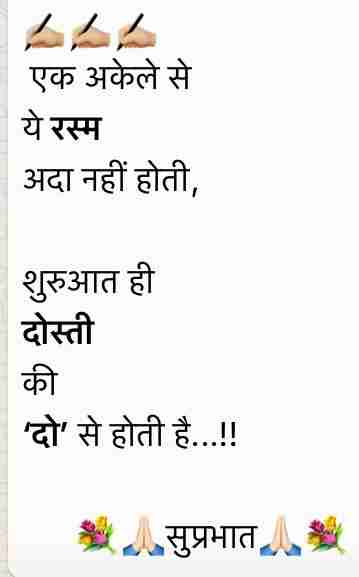 ✍🏼✍🏼✍🏼
एक अकेले से
ये रस्म
अदा नहीं होती,
शुरुआत ही
दोस्ती
की
‘दो’ से होती है...!!
💐🙏🏻सुप्रभात🙏🏻💐